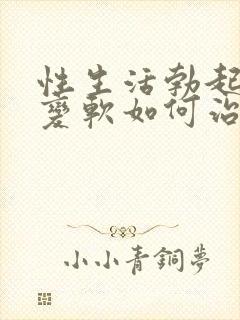 性生活勃起
变软如何治
小小青銅夢